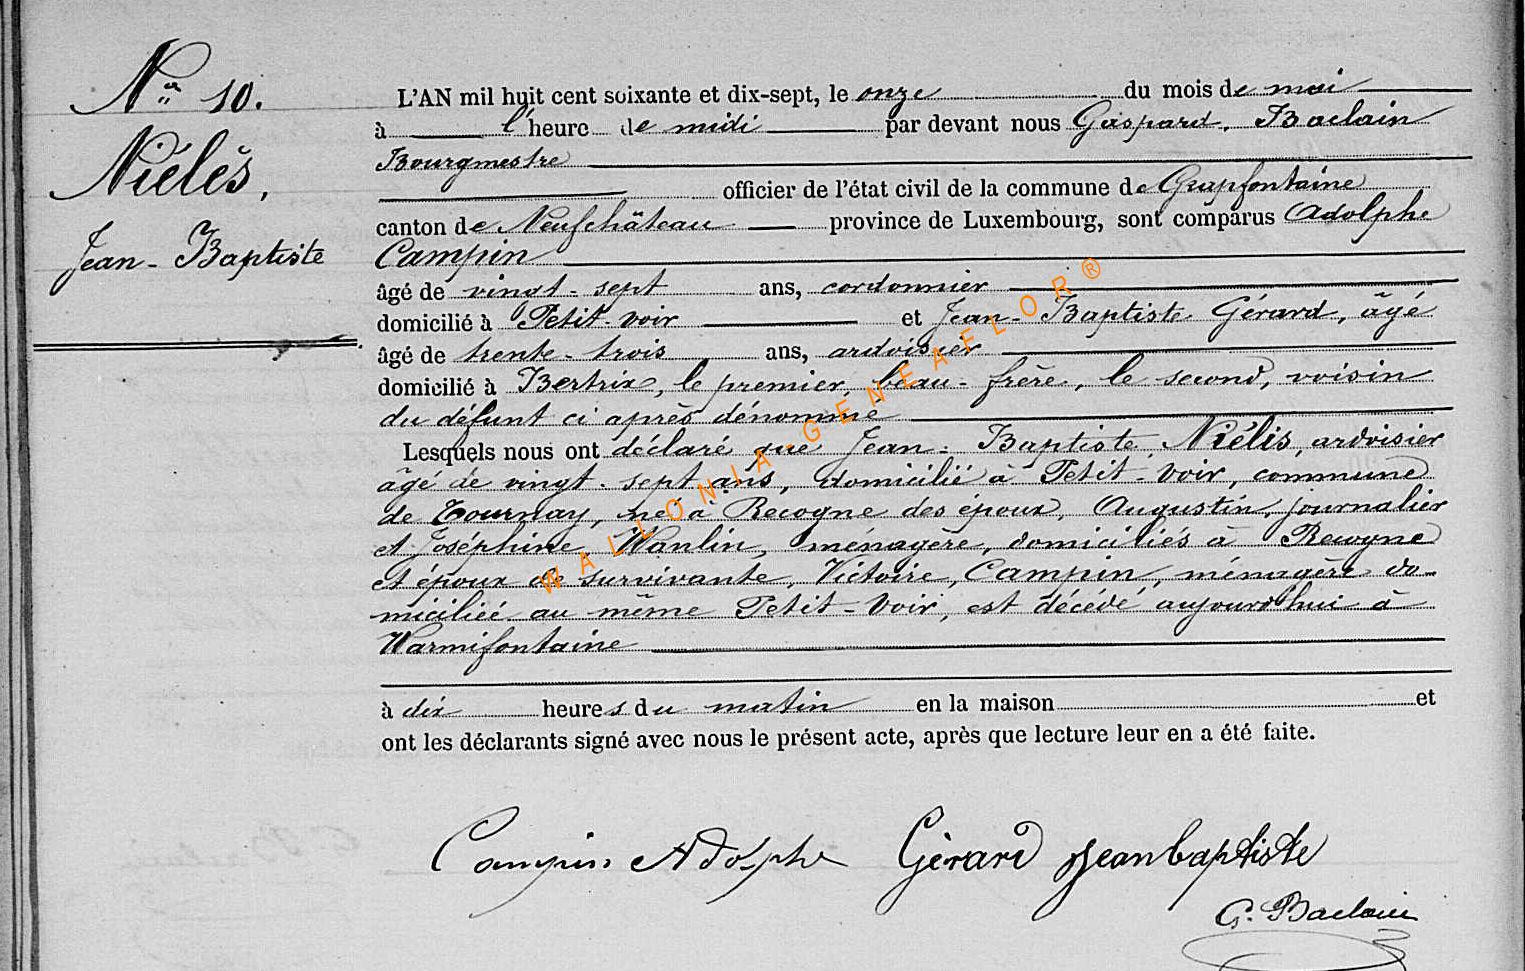 N° 10.
Niélès,
Jean-Baptiste
L'AN mil huit cent soixante et dix-sept, le onze du mois de mai
à l'heure de midi par devant nous Gaspard Baclain
Bourgmestre
officier de l'état civil de la commune de Grapfontaine
canton de Neufchâteau province de Luxembourg, sont comparus Adolphe
Campin
âgé de vingt-sept ans, cordonnier
domicilié à Petit-voir et Jean-Baptiste Gérard, âgé
âgé de trente-trois ans, ardoisier
domicilié à Bertrix, le premier, beau-frère, le second, voisin
du défunt ci après dénommé
Lesquels nous ont déclaré que Jean-Baptiste Niélis, ardoisier
âgé de vingt-sept ans, domicilié à Petit-Voir, commune
de Tournay, né à Recogne des époux, Augustin, journalier
et Joséphine, Wanlin, ménagère, domiciliés à Recogne
et époux de survivante, Victoire, Campin, ménagère do-
miciliée au même Petit-Voir, est décédé aujourd'hui à
Warmifontaine
à dix heures du matin en la maison et
ont les déclarants signé avec nous le présent acte, après que lecture leur en a été faite.
Campin Adolphe Gérard Jeanbaptiste
G. Baclain
WALLONIA-GENEAFLOR®